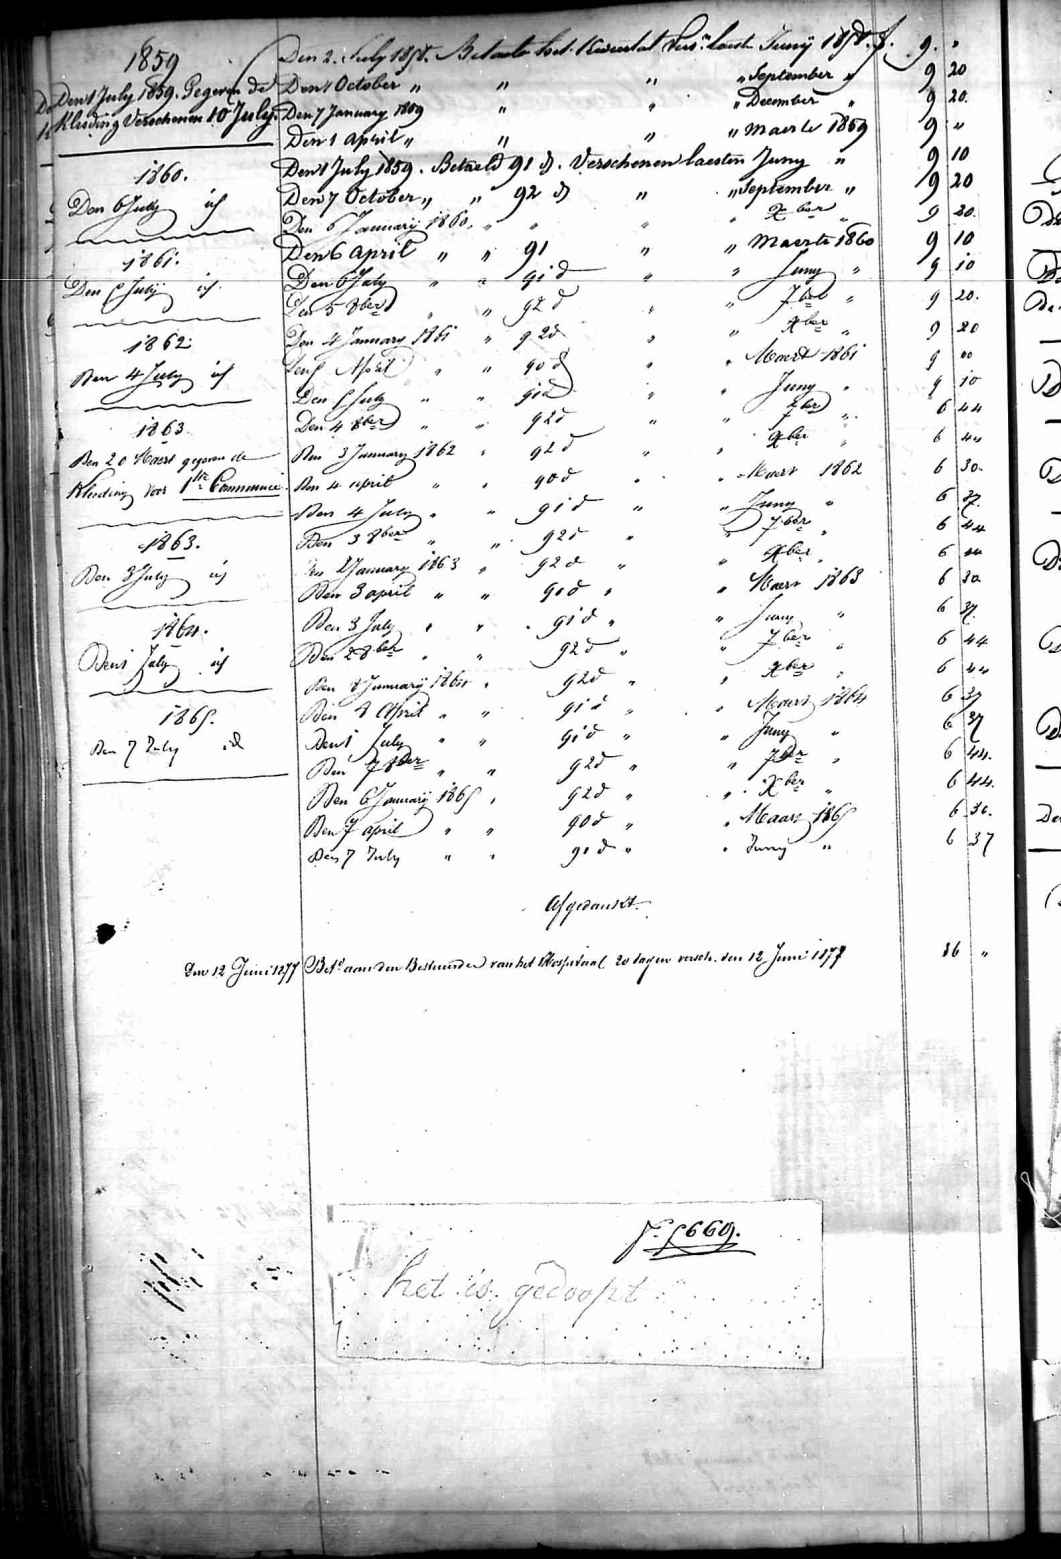 1859
Den 1 July 1859. Gegeven de
Kleeding Verschenen 10 July.
1860.
Den 6 July id
1861.
Den 5 July id.
1862
Den 4 July id
1863
Den 20 Maert gegeven de
Kleeding voor 1ste Communie.
1863.
Den 3 July id
1864.
Den 1 July id
1865.
Den 7 July id
Den 2. July 1858. Betaele het Kwartal Vers.n laeste Juny 1858. f. 9. "
Den 1 October " " " " September " 9 20
Den 7 January 1859 " " " December " 9 20.
Den 1 April " " " " Maerte 1859 9 "
Den 1 July 1859. Betaeld 91 d. Verschenen laesten Juny " 9 10
Den 7 October " " 92 d " " September " 9 20
Den 6 January 1860. " " " " Xber " 9 20.
Den 6 April " " 91 " " Maerte 1860 9 10
Den 6 July " " 91 d " " Juny " 9 10
Den 5 8ber " " 92 d " " 7ber " 9 20.
Den 4 January 1861 " 92 d " " Xber " 9 20
Den 5 April " " 90 d " " Maert 1861 9 00
Den 5 July " " 91 d " " Juny " 9 10
Den 4 8ber " " 92 d " " 7ber " 6 44
Den 3 January 1862 " 92 d " " Xber " 6 44
Den 4 april " " 90 d " " Maert 1862 6 30.
Den 4 July " " 91 d " " Juny " 6 37.
Den 3 8ber " " 92 d " " 7ber " 6 44
Den 2 January 1863 " 92 d " " Xber " 6 44
Den 3 april " " 90 d " " Maert 1863 6 30
Den 3 July " " 91 d " " Juny " 6 37.
Den 2 8ber " " 92 d " " 7ber " 6 44
Den 8 January 1864 " 92 d " " Xber " 6 44
Den 8 April " " 91 d " " Maert 1864 6 37
Den 1 July " " 91 d " " Juny " 6 37
Den 7 8ber " " 92 d " " 7ber " 6 44.
Den 6 January 1865 " 92 d " " Xber " 6 44.
Den 7 april " " 90 d " " Maart 1865 6 30.
Den 7 July " " 91 d " " Juny " 6 37
Afgedankt.
Den 12 Juni 1877 Bet.d aan den Bestuurder van het Hospitaal 20 dagen versch. den 12 Juni 1877 16 "
N.° 5669.
het is gedoopt